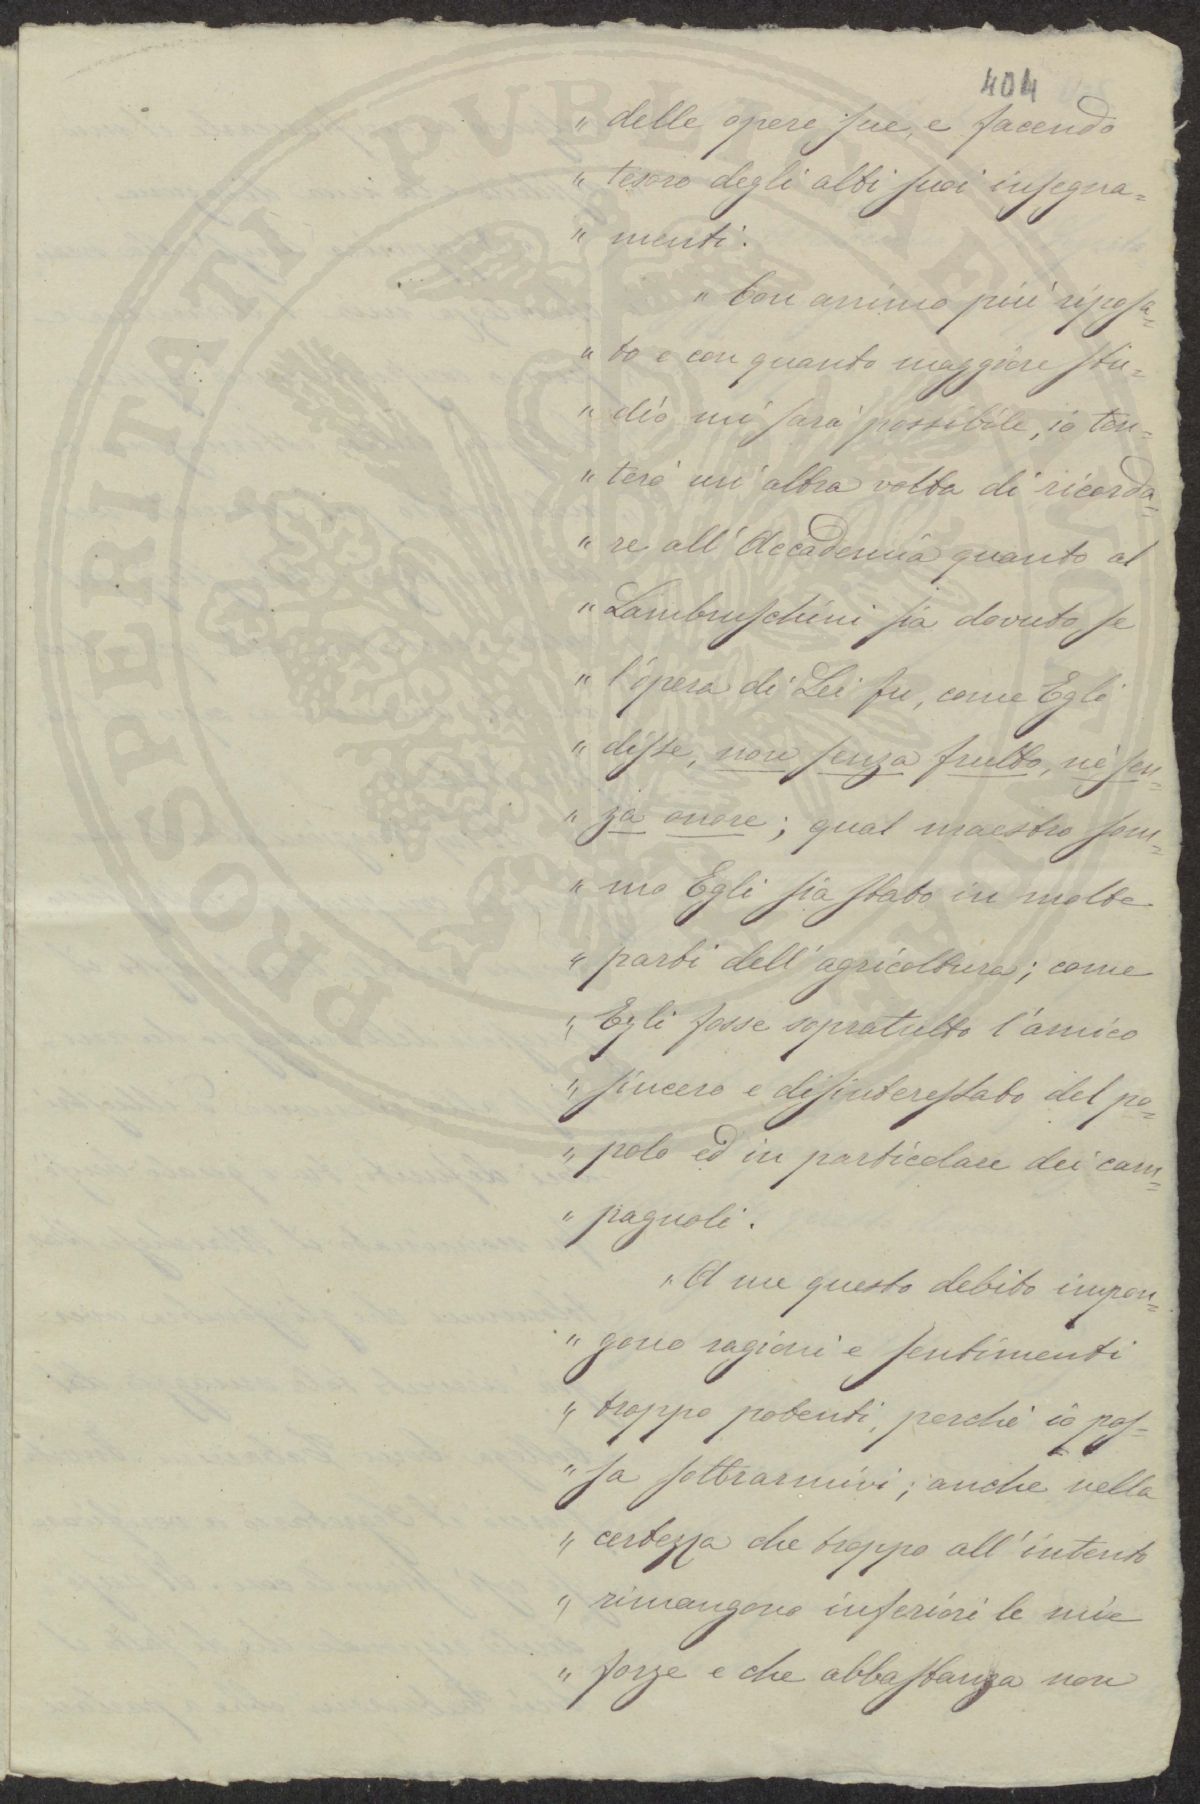 404
" delle opere sue, e facendo
" tesoro degli alti suoi insegna=
" menti.
" Con animo più riposa=
" to e con quanto maggiore stu=
" dio mi sarà possibile, io ten=
" terò un'altra volta di ricorda=
" re all'Accademia quanto al
" Lambruschini sia dovuto se
" l'opera di Lei fu, come Egli
" disse, non senza frutto, nè sen=
" za onore; qual maestro som=
" mo Egli sia stato in molte
" parti dell'agricoltura; come
" Egli fosse sopratutto l'amico
" sincero e disinteressato del po=
" polo ed in particolare dei cam=
" pagnoli.
" A me questo debito impon=
" gono ragioni e sentimenti
" troppo potenti, perchè io pos=
" sa sottrarmivi; anche nella
" certezza che troppo all'intento
" rimangono inferiori le mie
" forze e che abbastanza non
PROSPERITATI PUBLICAE AUGENDAE